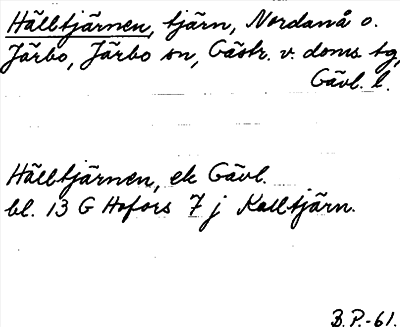 Hälltjärnen, tjärn, Nordanå o.
Järbo, Järbo sn, Gästr. v. doms tg,
Gävl. l.
Hälltjärnen, ek Gävl.
bl. 13 G Hofors 7 j Kalltjärn.
B.P.-61.